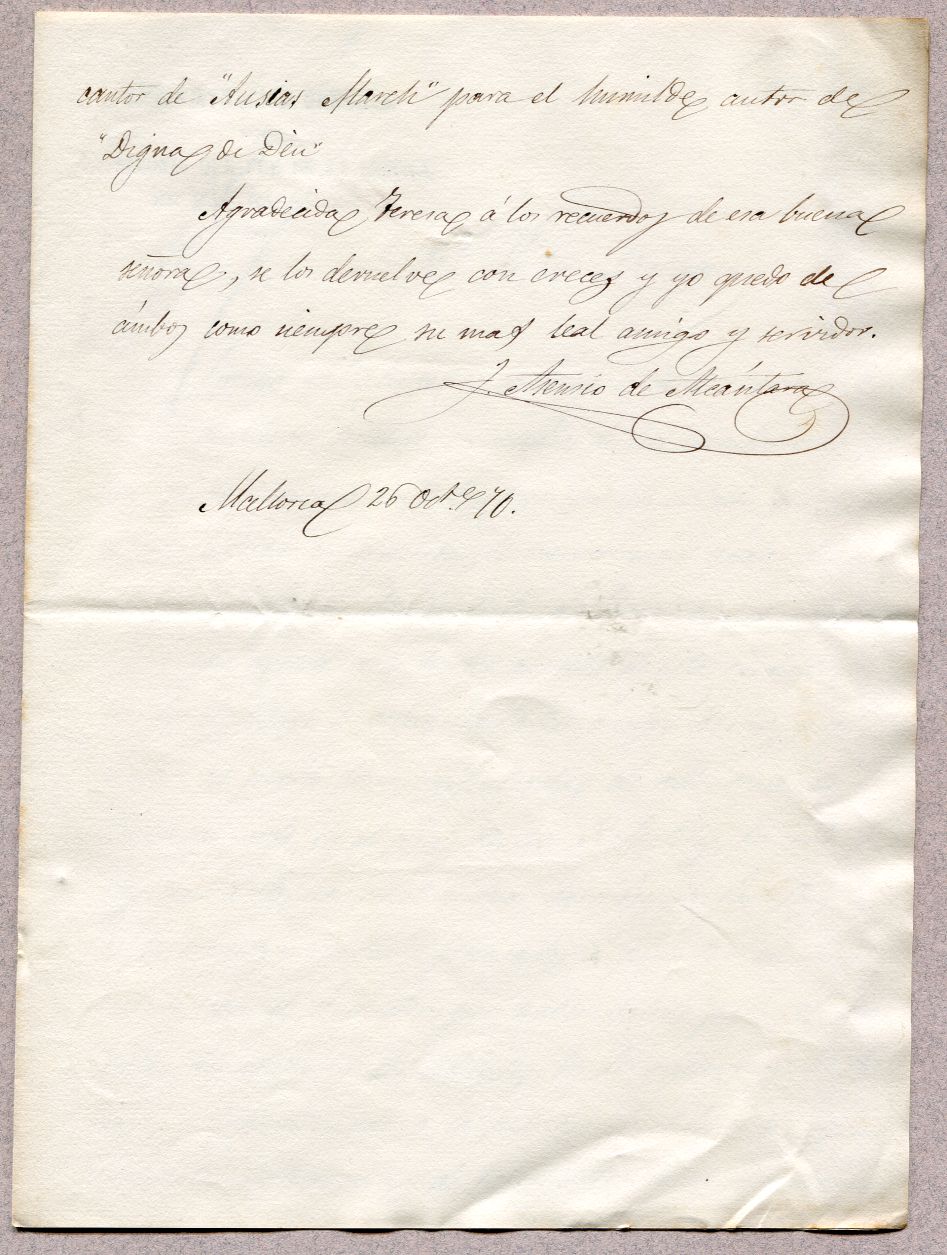 cantor de "Ausias March" para el humilde autor de
"Digna de Déu"
Agradecida Teresa á los recuerdos de esa buena
señora, se los devuelve con creces y yo quedo de
ámbos como siempre su mas leal amigo y servidor.
J. Asensio de Alcántara
Mallorca 26 Oct.e 70.